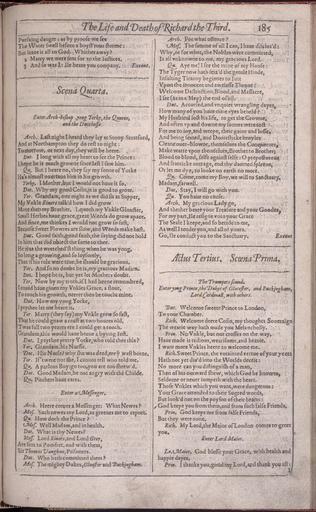 The Life and Death of Richard the Third. 185
Pursuing danger: as by proofe we see
The Water swell before a boyst'rous storme:
But leave it all to God. Whither away?
2 Marry we were sent for to the Iustices.
3 And so was I: Ile beare you company. Exeunt.
Scena Quarta.
Enter Arch-bishop, yong Yorke, the Queene,
and the Dutchesse.
Arch. Last night I heard they lay at Stony Stratford,
And at Northampton they do rest to night:
To morrow, or next day, they will be heere.
Dut. I long with all my heart to see the Prince:
I hope he is much growne since last I saw him.
Qu. But I heare no, they say my sonne of Yorke
Ha's almost ouertane him in his growth.
Yorke. I Mother, but I would not haue it so.
Dut. Why my good Cosin, it is good to grow.
Yor. Grandam, one night as we did sit at Supper,
My Vnkle Riuers talk'd how I did grow
More then my Brother. I, quoth my Vnkle Glouster,
Small Herbes haue grace, great Weeds do grow apace.
And since, me thinkes I would not grow so fast,
Because sweet Flowres are slow, and Weeds make hast.
Dut. Good faith, good faith, the saying did not hold
In him that did obiect the same to thee.
He was the wretched'st thing when he was yong,
So long a growing, and so leysurely,
That if his rule were true, he should be gracious.
Yor. And so no doubt he is, my gracious Madam.
Dut. I hope he is, but yet let Mothers doubt.
Yor. Now by my troth, if I had beene remembred,
I could haue giuen my Vnkles Grace, a flout,
To touch his growth, neerer then he toucht mine.
Dut. How my yong Yorke,
I prythee let me heare it.
Yor. Marry (they say) my Vnkle grew so fast,
That he could gnaw a crust at two houres old,
'Twas full two yeares ere I could get a tooth.
Grandam, this would haue beene a byting Iest.
Dut. I prythee pretty Yorke, who told thee this?
Yor. Grandam, his Nursse.
Dut. His Nurse? why she was dead, ere ÿ wast borne.
Yor. If 'twere not she, I cannot tell who told me.
Qu. A parlous Boy: go too, you are too shrew'd.
Dut. Good Madam, be not angry with the Childe.
Qu. Pitchers haue eares.
Enter a Messenger.
Arch. Heere comes a Messenger: What Newes?
Mes. Such newes my Lord, as greeues me to report.
Qu. How doth the Prince?
Mes. Well Madam, and in health.
Dut. What is thy Newes?
Mes. Lord Riuers, and Lord Grey,
Are sent to Pomfret, and with them,
Sir Thomas Vaughan, Prisoners.
Dut. Who hath committed them?
Mes. The mighty Dukes, Glouster and Buckingham.
Arch. For what offence?
Mes. The summe of all I can, I haue disclos'd:
Why, or for what, the Nobles were committed,
Is all vnknowne to me, my gracious Lord.
Qu. Aye me! I see the ruine of my House:
The Tyger now hath seiz'd the gentle Hinde,
Insulting Tiranny beginnes to Iutt
Vpon the innocent and awelesse Throne:
Welcome Destruction, Blood, and Massacre,
I see (as in a Map) the end of all.
Dut. Accursed, and vnquiet wrangling dayes,
How many of you haue mine eyes beheld?
My Husband lost his life, to get the Crowne,
And often vp and downe my sonnes were tost
For me to ioy, and weepe, their gaine and losse.
And being seated, and Domesticke broyles
Cleane ouer-blowne, themselues the Conquerors,
Make warre vpon themselues, Brother to Brother;
Blood to blood, selfe against selfe: O prepostorous
And franticke outrage, end thy damned spleene,
Or let me dye, to looke on earth no more.
Qu. Come, come my Boy, we will to Sanctuary.
Madam, farwell.
Dut. Stay, I will go with you.
Qu. You haue no cause.
Arch. My gracious Lady go,
And thether beare your Treasure and your Goodes,
For my part, Ile resigne vnto your Grace
The Seale I keepe, and so betide to me,
As well I tender you, and all of yours.
Go, Ile conduct you to the Sanctuary. Exeunt
Actus Tertius. Scœna Prima.
The Trumpets sound.
Enter yong Prince, the Dukes of Glocester, and Buckingham,
Lord Cardinall, with others.
Buc. Welcome sweete Prince to London,
To your Chamber.
Rich. Welcome deere Cosin, my thoughts Soueraign
The wearie way hath made you Melancholly.
Prin. No Vnkle, but our crosses on the way,
Haue made it tedious, wearisome, and heauie.
I want more Vnkles heere to welcome me.
Rich. Sweet Prince, the vntainted vertue of your yeers
Hath not yet diu'd into the Worlds deceit:
No more can you distinguish of a man,
Then of his outward shew, which God he knowes,
Seldome or neuer iumpeth with the heart.
Those Vnkles which you want, were dangerous:
Your Grace attended to their Sugred words,
But look'd not on the poyson of their hearts:
God keepe you from them, and from such false Friends.
Prin. God keepe me from false Friends,
But they were none.
Rich. My Lord, the Maior of London comes to greet
you.
Enter Lord Maior.
Lo. Maior. God blesse your Grace, with health and
happie dayes.
Prin. I thanke you, good my Lord, and thank you all: